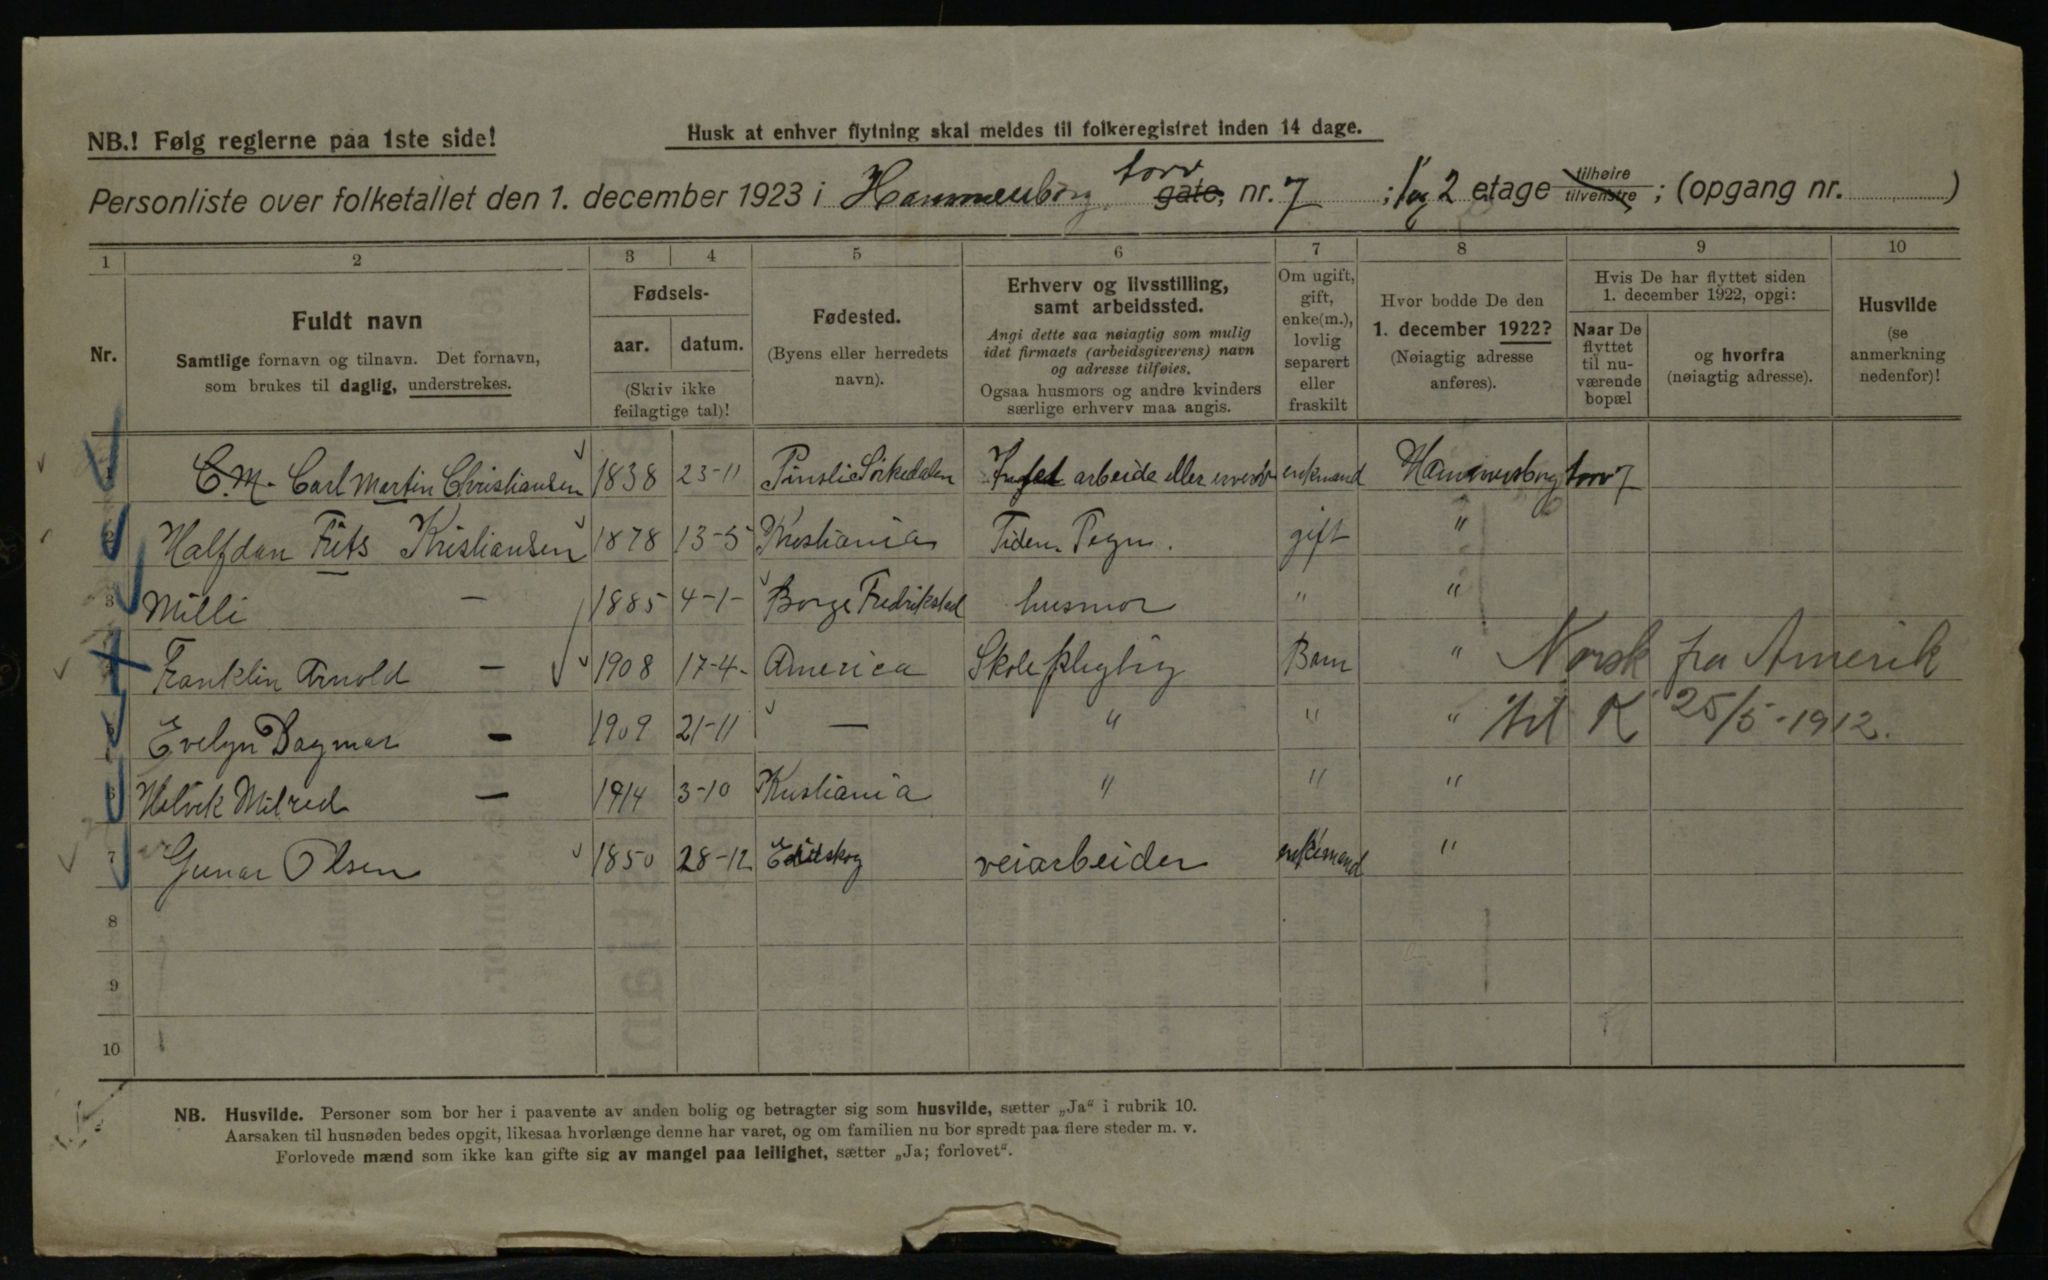 NB.! Følg reglerne paa 1ste side!
Husk at enhver flytning skal meldes til folkeregistret inden 14 dage.
Personliste over folketallet den 1. december 1923 i Hammersborg torv gate, nr. 7 ; 1 og 2 etage tilhøire tilvenstre ; (opgang nr. )
1 2 3 4 5 6 7 8 9 10
Nr.
Fuldt navn
Samtlige fornavn og tilnavn. Det fornavn,
som brukes til daglig, understrekes.
Fødsels-
aar. datum.
(Skriv ikke
feilagtige tal)!
Fødested.
(Byens eller herredets
navn).
Erhverv og livsstilling,
samt arbeidssted.
Angi dette saa nøiagtig som mulig
idet firmaets (arbeidsgiverens) navn
og adresse tilføies.
Ogsaa husmors og andre kvinders
særlige erhverv maa angis.
Om ugift,
gift,
enke(m.),
lovlig
separert
eller
fraskilt
Hvor bodde De den
1. december 1922?
(Nøiagtig adresse
anføres).
Hvis De har flyttet siden
1. december 1922, opgi:
Naar De
flyttet
til nu-
værende
bopæl
og hvorfra
(nøiagtig adresse).
Husvilde
(se
anmerkning
nedenfor)!
C.M. Carl Martin Christiansen 1838 23-11 Sørkedalen arbeide eller enkmand Hammersborg torv 7
2 Halfdan Frits Kristiansen 1878 13-5 Kristiania Tidens Tegn. gift "
3 Milli — 1885 4-1- Borge Fredrikstad husmor " "
Franklin Arnold — 1908 17-4- America Skolepligtig Barn " Norsk fra Amerik
5 Evelyn Dagmar — 1909 21-11 " — " " " til K 25/5-1912.
6 Milred — 1914 3-10 Kristiania " " "
7 Gunar Olsen 1850 28-12 Eidskog veiarbeider enkemand "
8
9
10
NB. Husvilde. Personer som bor her i paavente av anden bolig og betragter sig som husvilde, sætter „Ja“ i rubrik 10.
Aarsaken til husnøden bedes opgit, likesaa hvorlænge denne har varet, og om familien nu bor spredt paa flere steder m. v.
Forlovede mænd som ikke kan gifte sig av mangel paa leilighet, sætter „Ja; forlovet“.